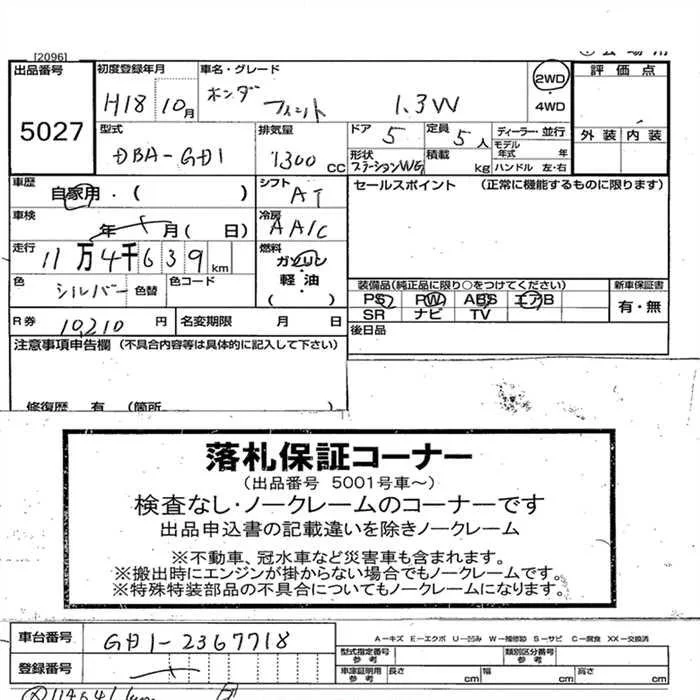 [2096]
出品番号
5027
初度登録年月
H18 10月
車名・グレード
ホンダ フィット 1.3W
2WD
・
4WD
評価点
外装 内装
型式
DBA-GD1
排気量
1300 CC
ドア
5
定員
5人
ディーラー・並行
モデル年式 年
形状
ステーションWG
積載 kg
ハンドル 左・右
車歴
自家用・( )
シフト
AT
セールスポイント (正常に機能するものに限ります)
車検
年 月( 日)
冷房
AAC
走行
11万4千639km
燃料
ガソリン
・
軽油
( )
色
シルバー
色替
色コード
装備品(純正品に限り○をつけてください)
PS PW ABS エアB
SR ナビ TV
新車保証書
有・無
R券
10,210円
名変期限 月 日
後日品
注意事項申告欄 (不具合内容等は具体的に記入して下さい)
修復歴 有 (箇所
落札保証コーナー
(出品番号 5001号車～)
検査なし・ノークレームのコーナーです
出品申込書の記載違いを除きノークレーム
※不動車、冠水車など災害車も含まれます。
※搬出時にエンジンが掛からない場合でもノークレームです。
※特殊特装部品の不具合についてもノークレームになります。
車台番号
GD1-2367718
A－キズ E－エクボ U－凹み W－補修跡 S－サビ C－腐食 XX－交換済
登録番号
型式指定番号
参考
類別区分番号
参考
車庫証明用
参考
長さ cm 幅 cm 高さ cm